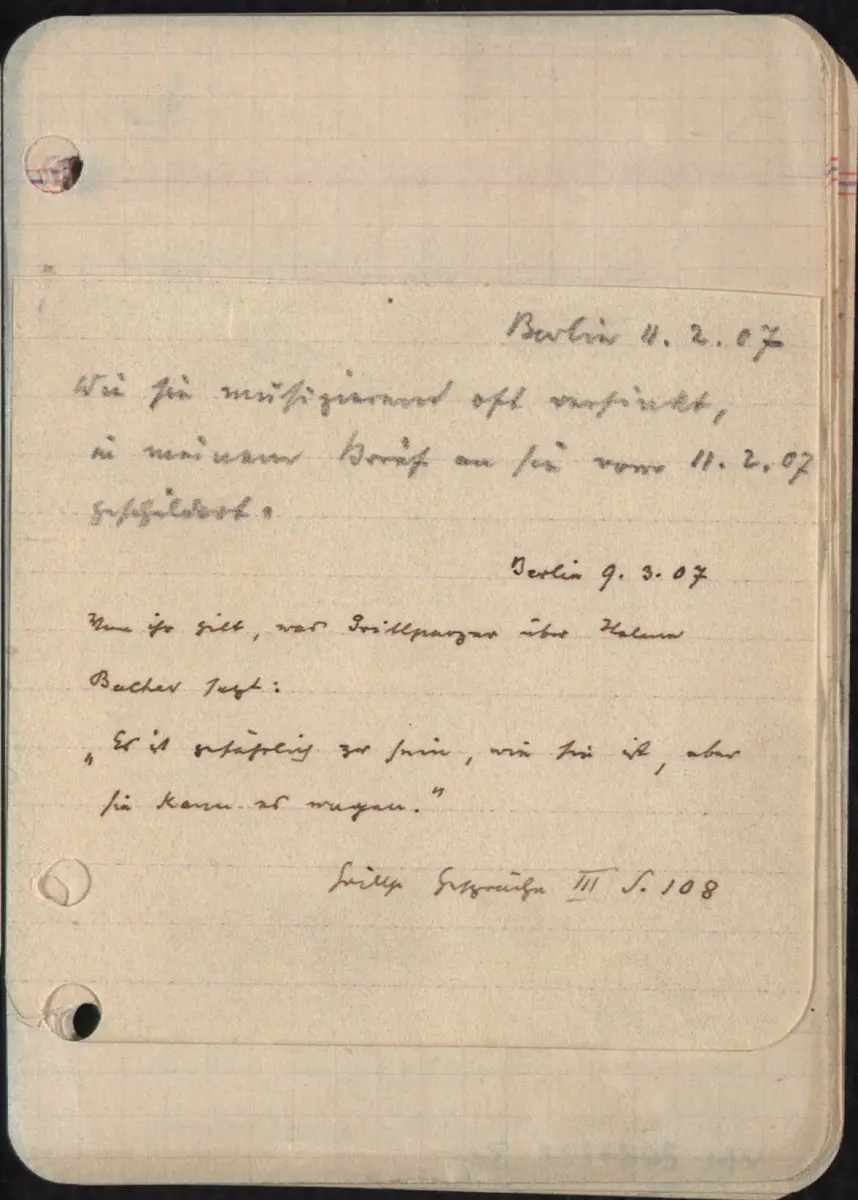 Berlin 11. 2. 07
Wie sie musizierend oft versinkt,
in meinem Brief an sie vom 11. 2. 07
geschildert.
Berlin 9. 3. 07
Von ihr gilt, was Grillparzer über
Bacher sagt:
„Es ist gefährlich zu sein, wie sie ist, aber
sie kann es wagen."
Grillp Gespräche III S. 108